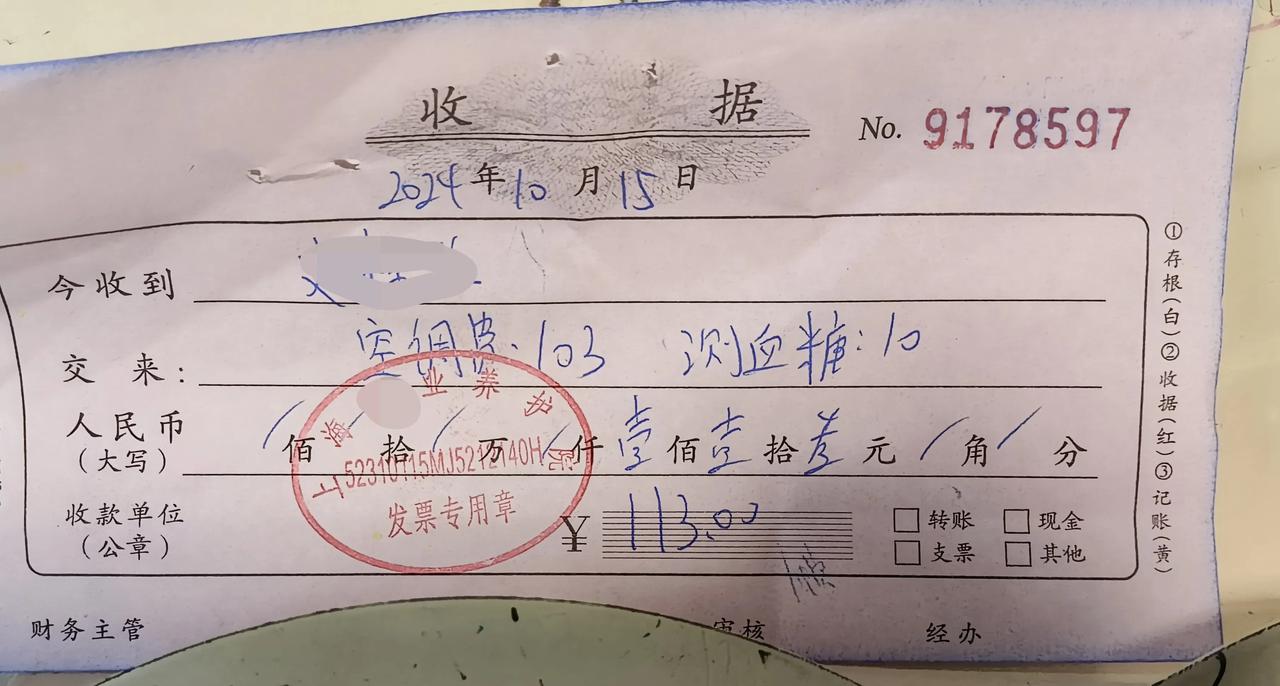 收 据
No. 9178597
2024年10月15日
今收到
交 来: 空调费:103 测血糖:10
人民币(大写) /佰/拾/万/仟壹佰壹拾叁元/角/分
收款单位(公章)
¥ 113.00
转账 现金
支票 其他
上海 业养护院
52310115MJ5212140H
发票专用章
①存根(白)②收据(红)③记账(黄)
财务主管 审核 经办